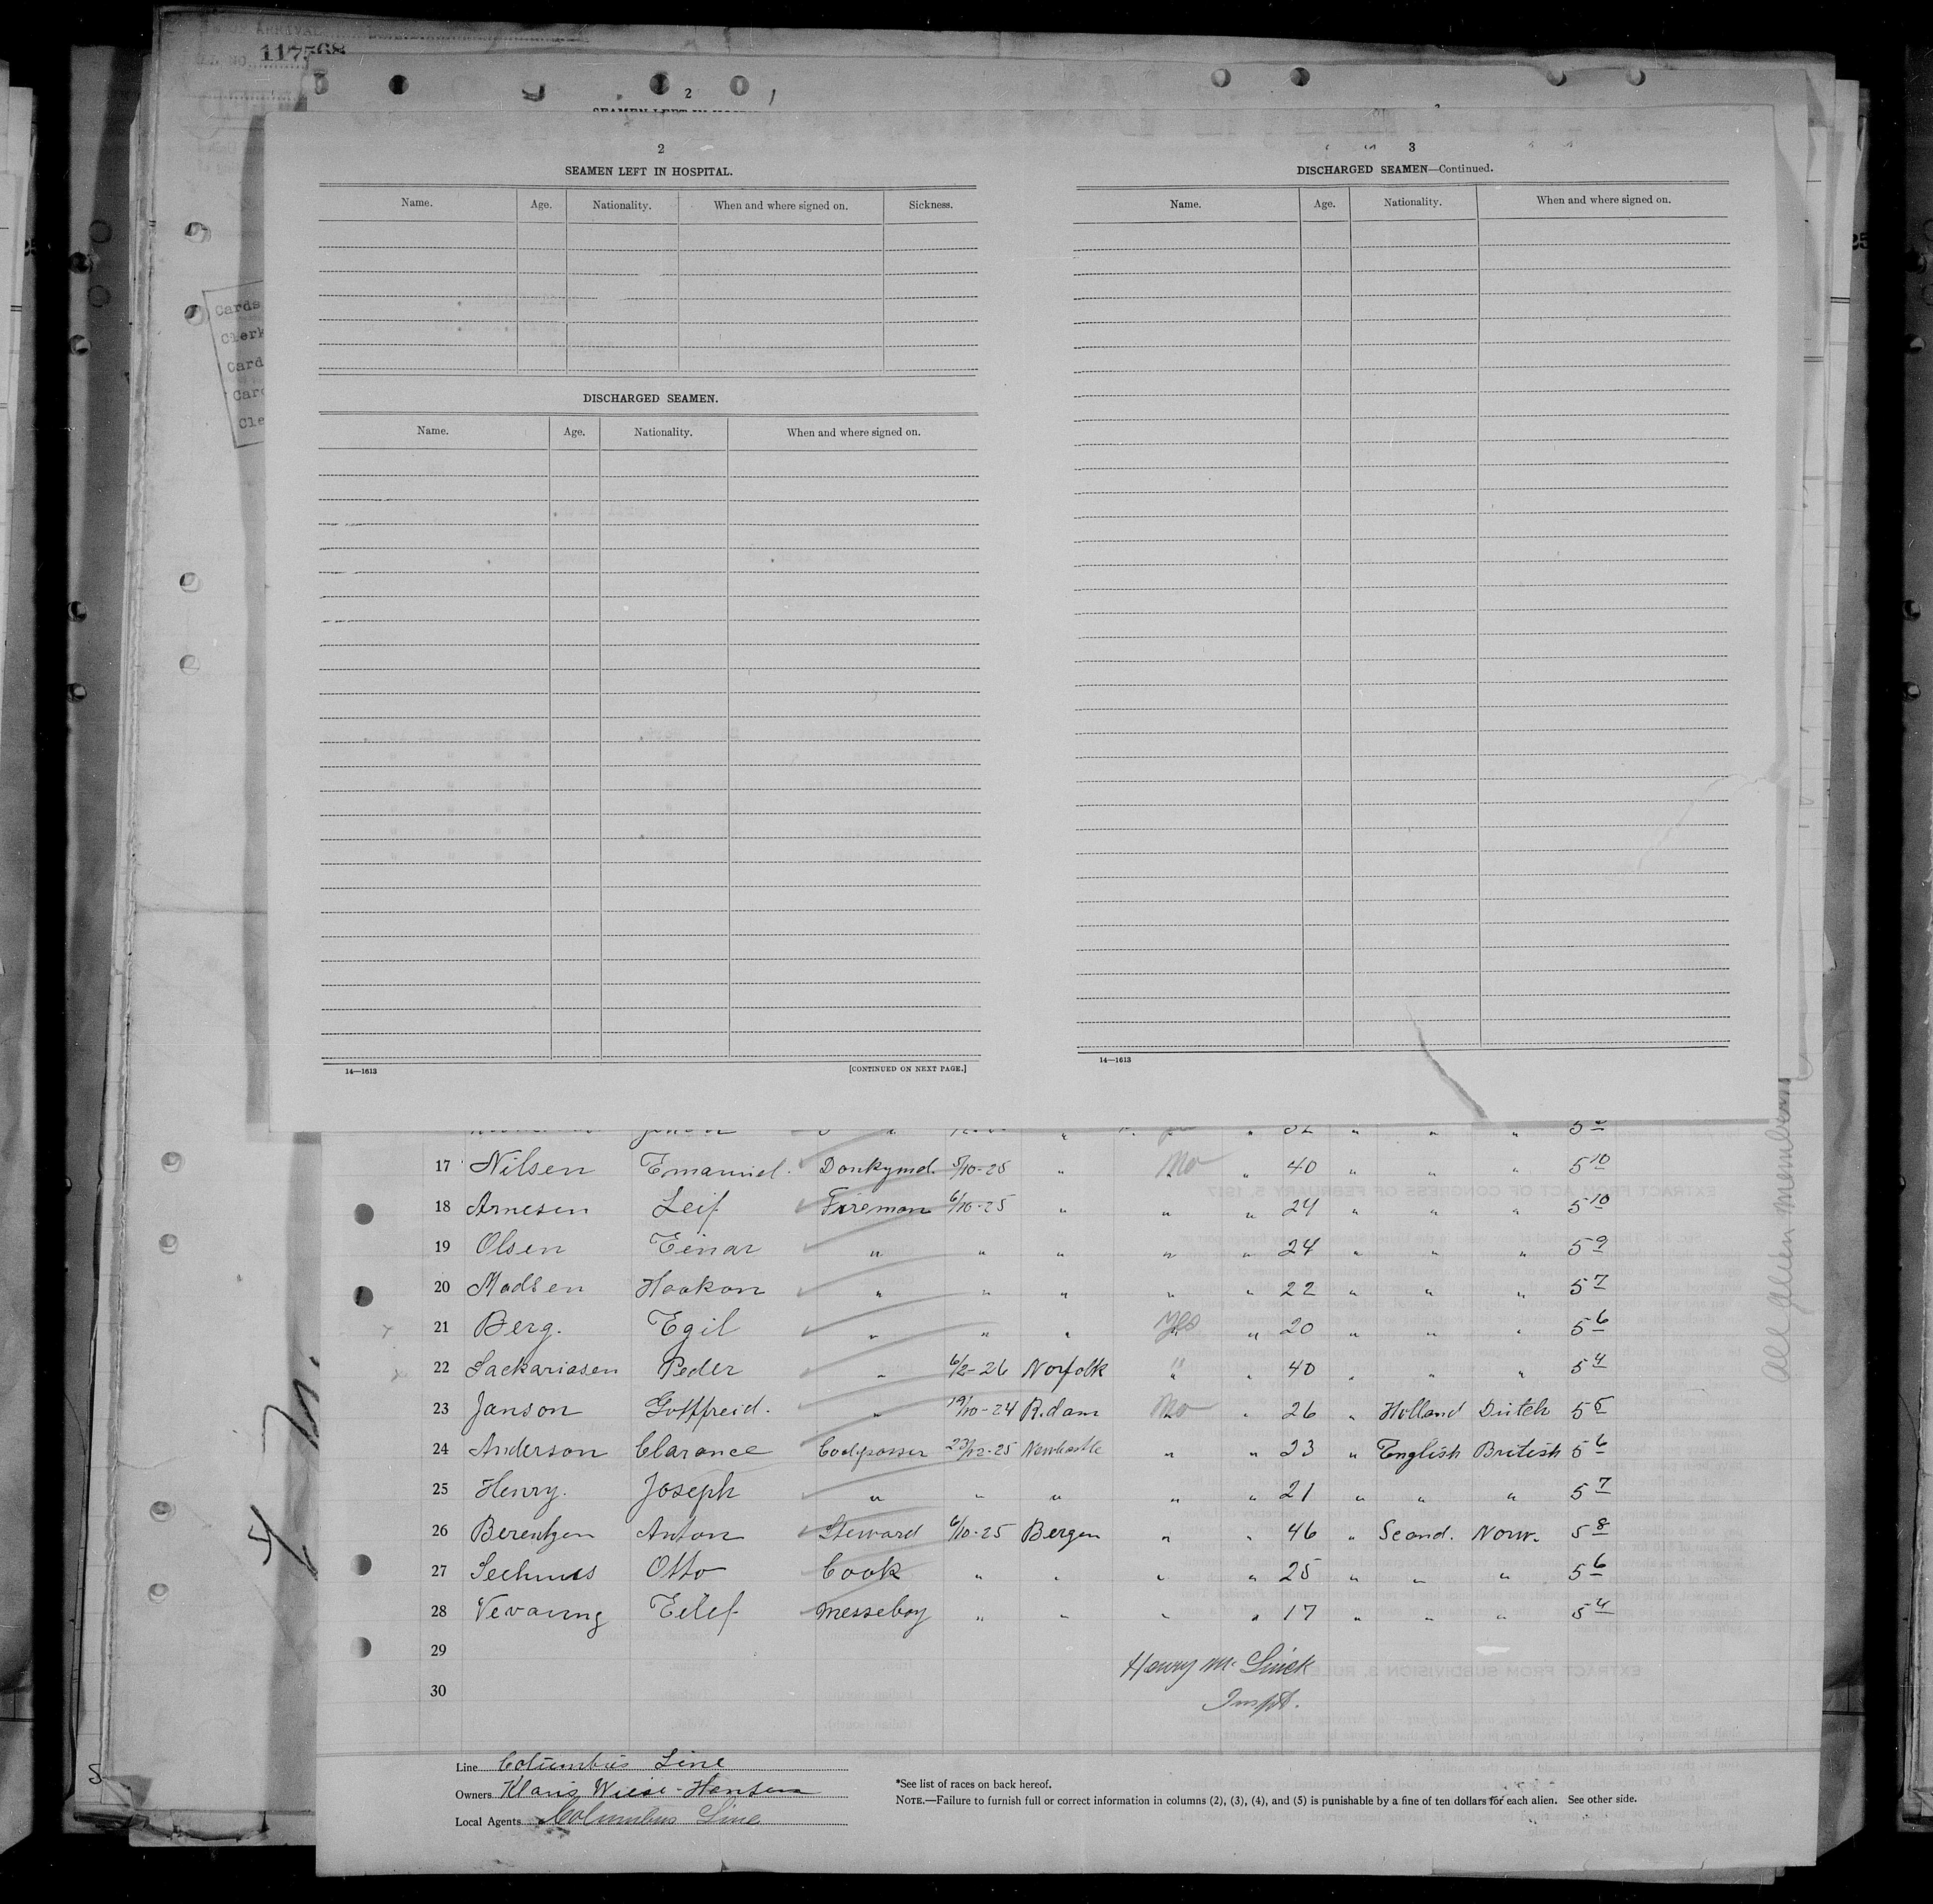 OF ARRIVAL
117568
2
2
SEAMEN LEFT IN HOSPITAL.
Name. Age. Nationality. When and where signed on. Sickness.
DISCHARGED SEAMEN.
Name. Age. Nationality. When and where signed on.
14—1613 [CONTINUED ON NEXT PAGE.]
3
DISCHARGED SEAMEN—Continued.
Name. Age. Nationality. When and where signed on.
14—1613
Cards
Clerk
Card
Card
Cle
17 Nilsen Emanuel. Donkymd. 5/10-25 " No " 40 " " " 5 10
18 Arnesen Leif Fireman 6/10-25 " " " 24 " " " 5 10
19 Olsen Einar " " " " " 24 " " " 5 9
20 Madsen Haakon " " " " " 22 " " " 5 7
21 Berg. Egil " " " Yes " 20 " " " 5 6
22 Sackariasen Peder " 6/2-26 Norfolk " " 40 " " " 5 4
23 Janson Gottfreid. " 19/10-24 R.dam No " 26 " Holland Dutch 5 5
24 Anderson Clarance Coalpasser 23/12-25 Newcastle " " 23 " English British 5 6
25 Henry. Joseph " " " " " 21 " " " 5 7
26 Berentzen Anton Steward 6/10-25 Bergen " " 46 " Scand. Norw. 5 8
27 Otto Cook " " " " 25 " " " 5 6
28 Messeboy " " " " 17 " " " 5 4
29
30
Henry Mc
Inspt.
Line Columbus Line
Owners Wiese-Hansen
Local Agents Columbus Line
*See list of races on back hereof.
NOTE.—Failure to furnish full or correct information in columns (2), (3), (4), and (5) is punishable by a fine of ten dollars for each alien. See other side.